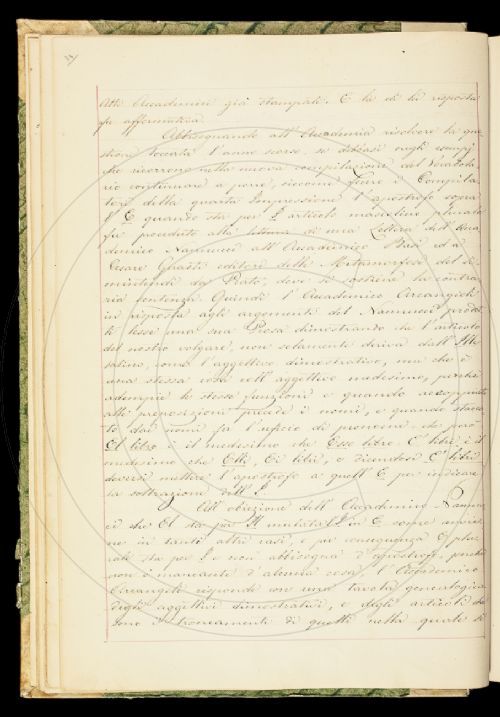 Atti Accademici già stampati. E la di lui risposta
fu affermativa.
Abbisognando all' Accademia risolvere la que
stione toccata l'anno scorso, se debbasi negli esempi
che ricorrono nella nuova compilazione del Vocabola
rio continuare a porre, siccome fecero i Compila
tori della quarta Impressione l'apostrofo sopra
l' E quando sta per I articolo mascolino plurale
fu preceduto alla lettura di una Lettera dell' Acca
demico Nannucci all' Accademico Basi ed a
Cesare Guasti editore delle Metamorfosi del Si
mintendi da Prato, dove si sostiene la contra
ria sentenza. Quindi l' Accademico Arcangioli
in risposta agli argomenti del Nannucci
lesse una sua Prosa dimostrando che l'articolo
del nostro volgare, non solamente deriva dall' Ille
latino, come l'aggettivo dimostrativo, ma che è
una stessa cosa coll' aggettivo medesimo, perchè
adempie le stesse funzioni e quando
alle preposizioni precede i nomi, e quando stacca
to dai nomi fa l'uficio di pronome. che però
El libro è il medesimo che Esso libro. E' libri, è il
medesimo che Elli, Ei libri, e dicendosi E' libri
doversi mettere l'apostrofo a quell' E per indicare
la sottrazione dell' I.
All' obiezione dell' Accademico Nannuc
ci che El sta per Il mutata l' I in E come avvie
ne in tanti altri casi, e per conseguenza E plu
rale sta per I e non abbisogna d'apostrofo, perchè
non è mancante d'alcuna cosa, l' Accademico
Arcangioli risponde con una tavola genealogica
degli aggettivi dimostrativi, e degli articoli che
sono i troncamenti di quelli nella quale si